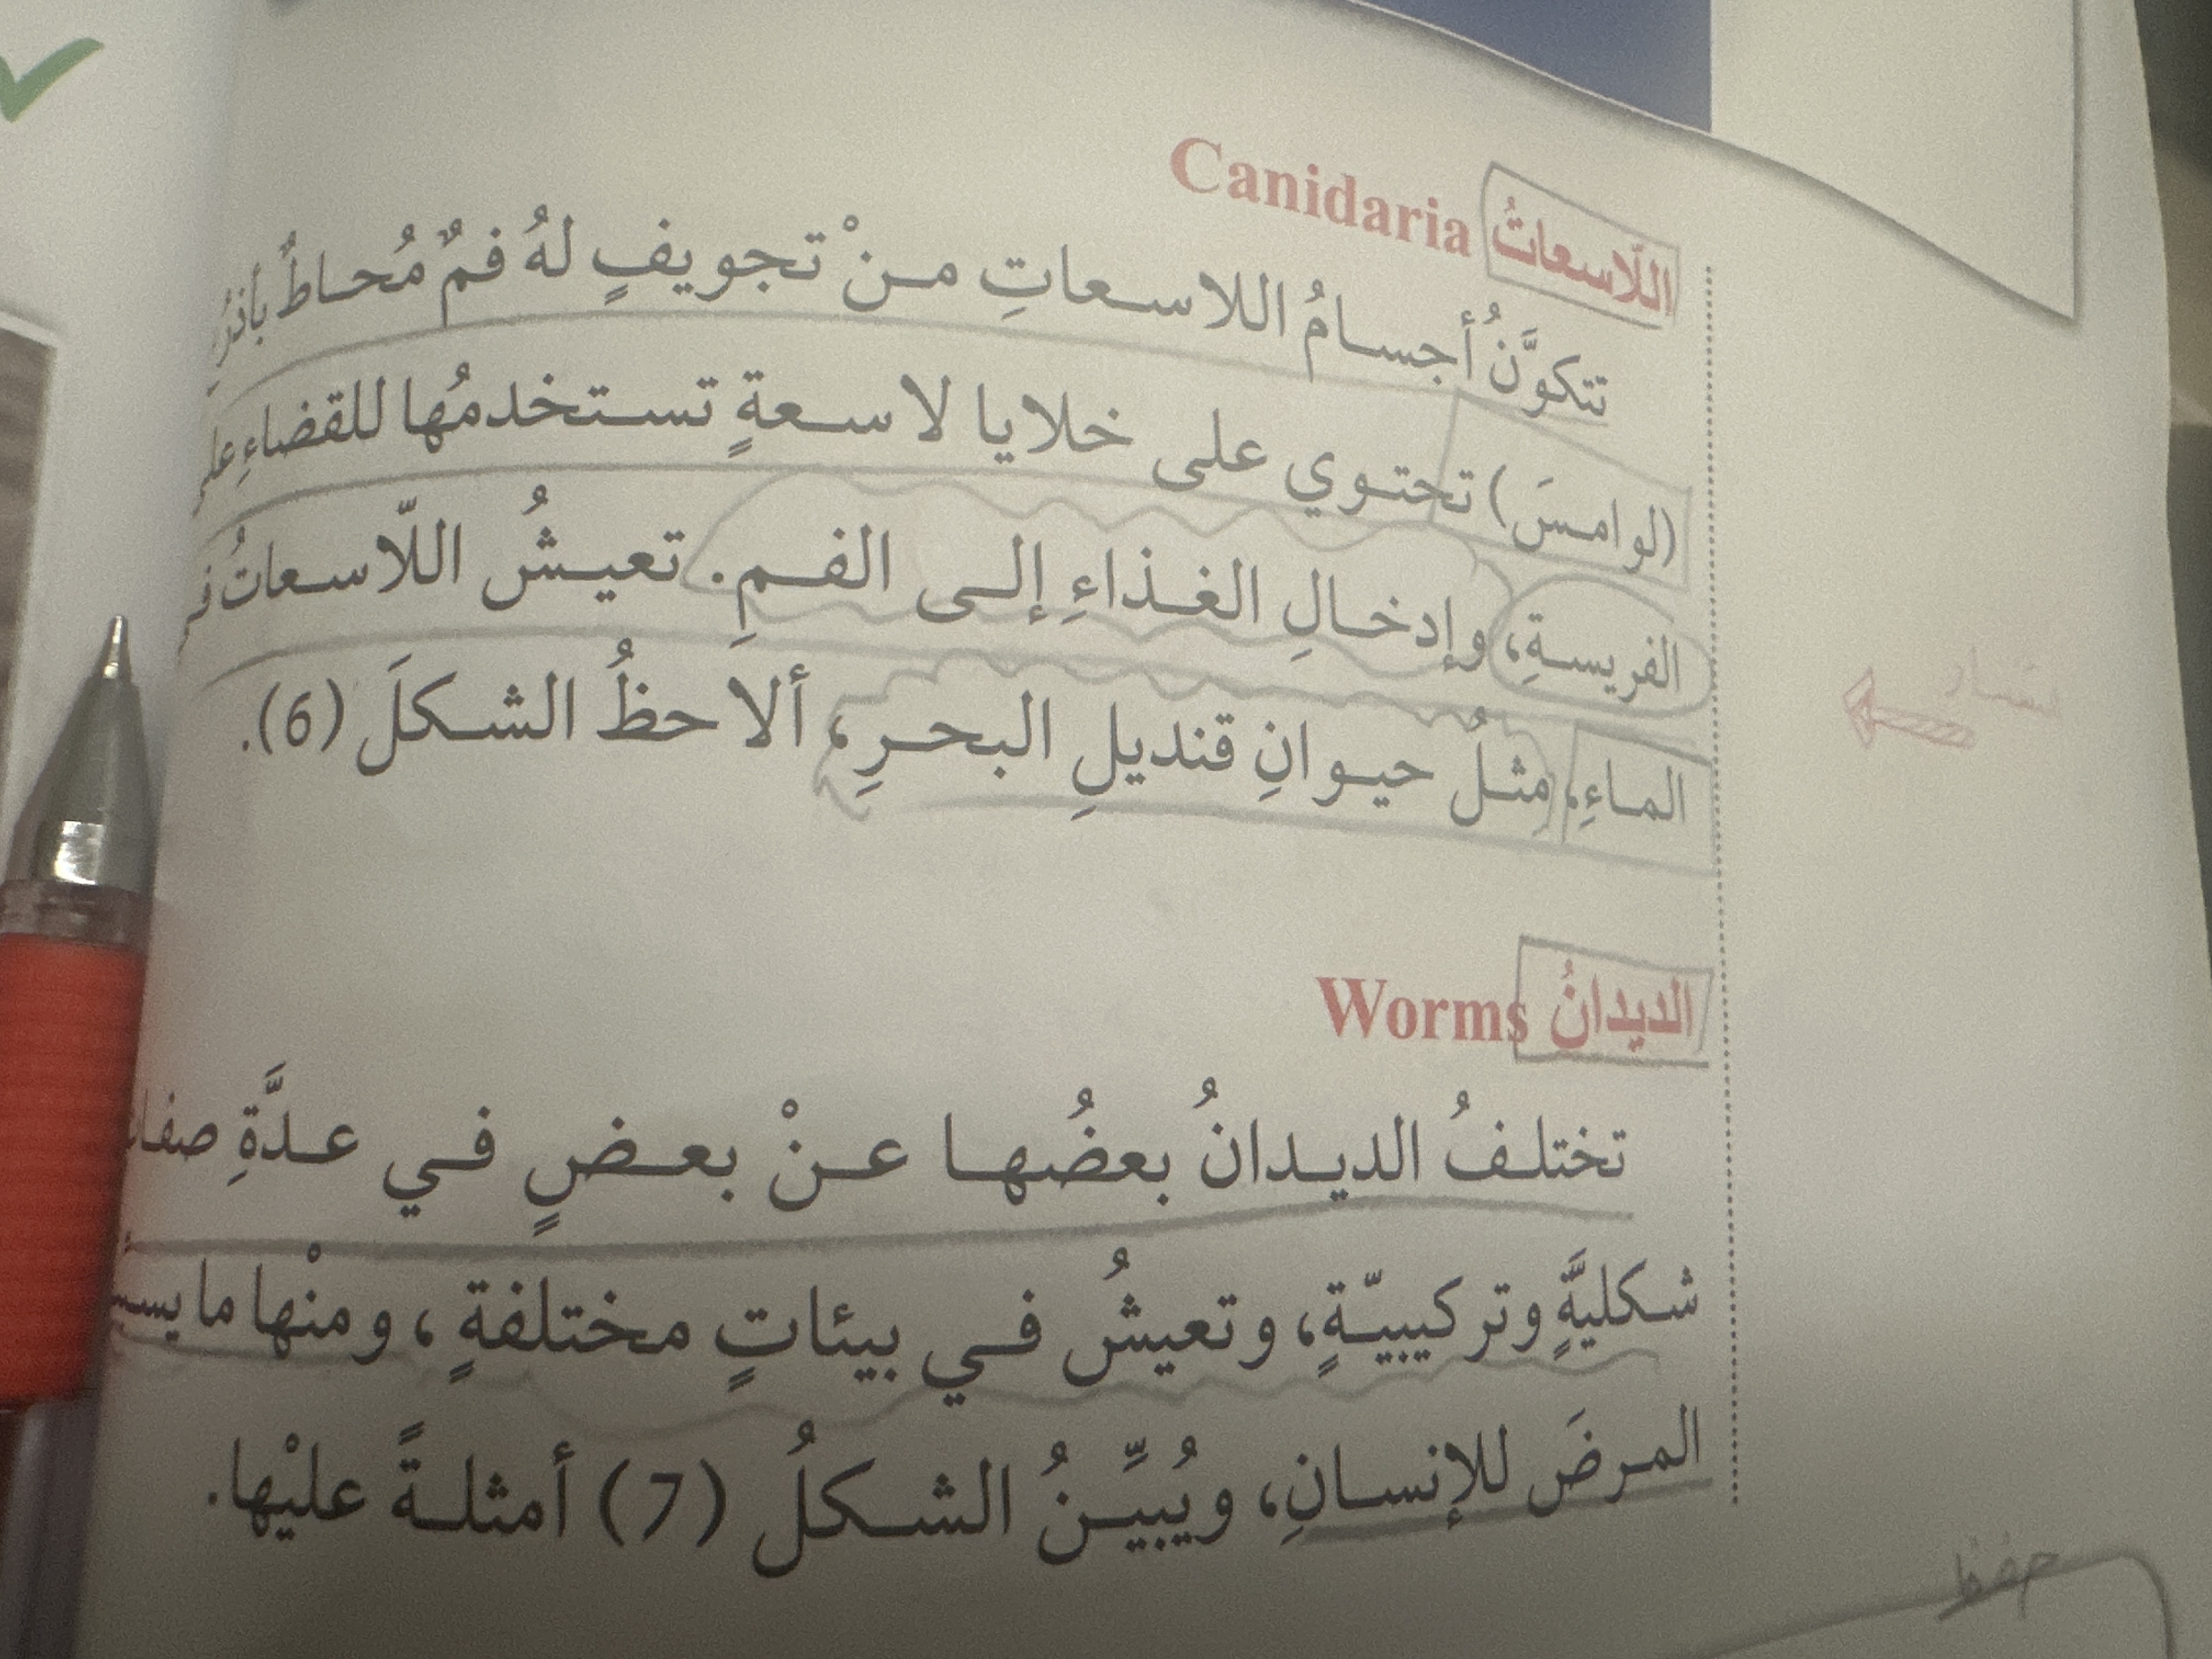 اللّاسعاتُ Canidaria
تتكوَّنُ أجسامُ اللاسعاتِ منْ تجويفٍ لهُ فمٌ مُحاطٌ
(لوامسَ) تحتوي على خلايا لاسعةٍ تستخدمُها للقضاءِ
الفريسةِ، وإدخالِ الغذاءِ إلى الفمِ. تعيشُ اللّاسعاتُ
الماءِ، مِثلُ حيوانِ قنديلِ البحرِ، ألاحظُ الشكلَ (6).
الديدانُ Worms
تختلفُ الديدانُ بعضُها عنْ بعضٍ في عدَّةِ
شكليةٍ وتركيبيّةٍ، وتعيشُ في بيئاتٍ مختلفةٍ، ومنْها ما
المرضَ للإنسانِ، ويُبيِّنُ الشكلُ (7) أمثلةً عليْها.
حفظ